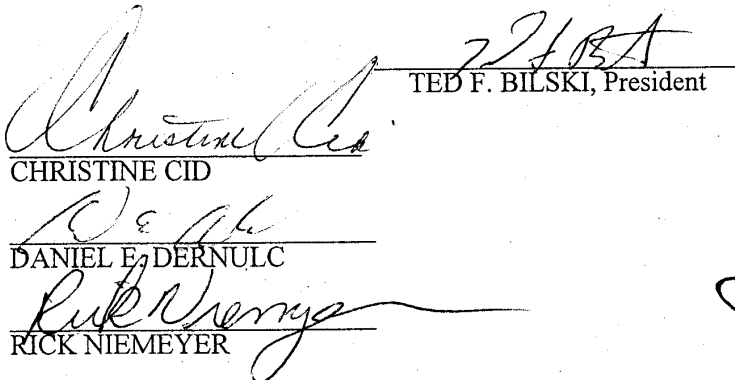 TED F. BILSKI, President
Christine Cid
CHRISTINE CID
DANIEL E. DERNULC
Rick Niemeyer
RICK NIEMEYER